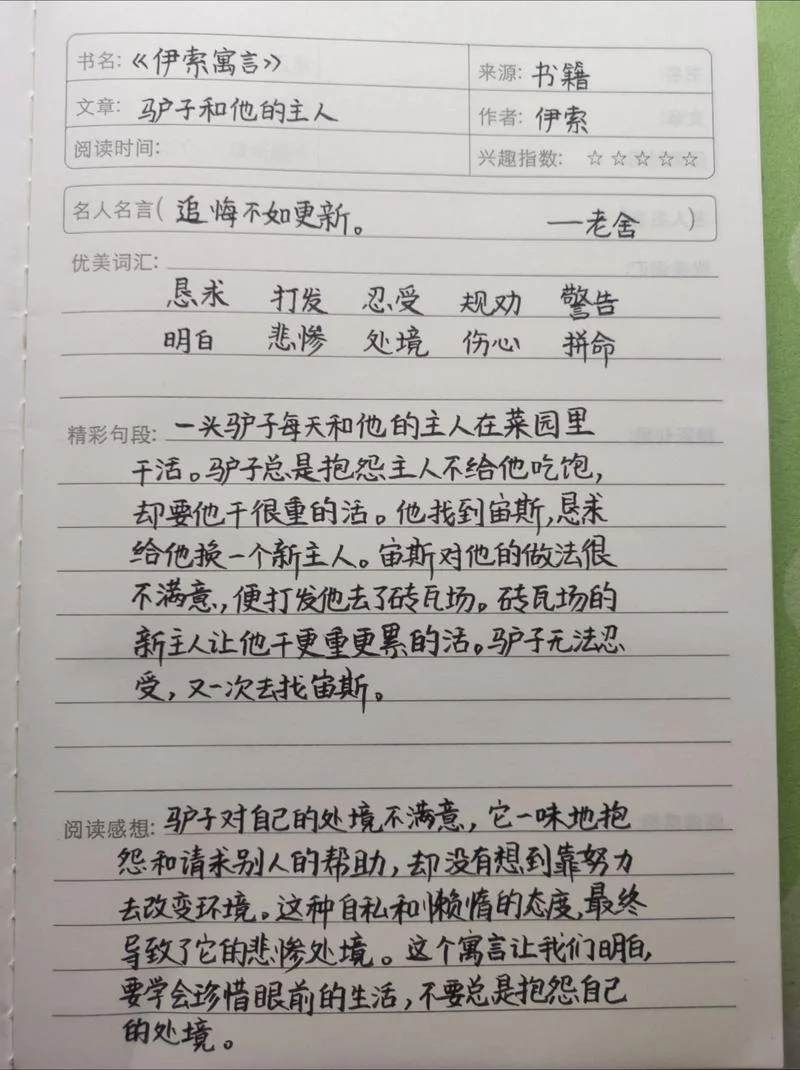 书名:《伊索寓言》
来源: 书籍
文章: 驴子和他的主人
作者: 伊索
阅读时间:
兴趣指数: ☆☆☆☆☆
名人名言( 追悔不如更新。 —老舍 )
优美词汇:
恳求 打发 忍受 规劝 警告
明白 悲惨 处境 伤心 拼命
精彩句段: 一头驴子每天和他的主人在菜园里
干活。驴子总是抱怨主人不给他吃饱,
却要他干很重的活。他找到宙斯,恳求
给他换一个新主人。宙斯对他的做法很
不满意,便打发他去了砖瓦场。砖瓦场的
新主人让他干更重更累的活。驴子无法忍
受,又一次去找宙斯。
阅读感想: 驴子对自己的处境不满意,它一味地抱
怨和请求别人的帮助,却没有想到靠努力
去改变环境。这种自私和懒惰的态度,最终
导致了它的悲惨处境。这个寓言让我们明白,
要学会珍惜眼前的生活,不要总是抱怨自己
的处境。